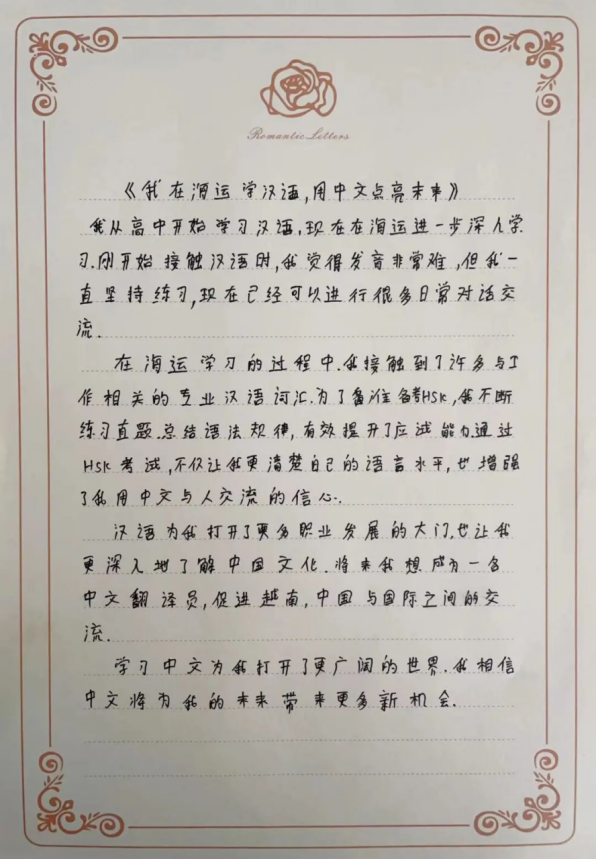 Romantic Letters
《我在海运学汉语,用中文点亮未来》
我从高中开始学习汉语,现在在海运进一步深入学
习.刚开始接触汉语时,我觉得发音非常难,但我一
直坚持练习,现在已经可以进行很多日常对话交
流.
在海运学习的过程中.我接触到了许多与工
作相关的专业汉语词汇.为了备准备考HSK,我不断
练习真题.总结语法规律,有效提升了应试能力.通过
HSK考试,不仅让我更清楚自己的语言水平,也增强
了我用中文与人交流的信心.
汉语为我打开了更多职业发展的大门.也让我
更深入地了解中国文化.将来我想成为一名
中文翻译员,促进越南,中国与国际之间的交
流.
学习中文为我打开了更广阔的世界.我相信
中文将为我的未来带来更多新机会.